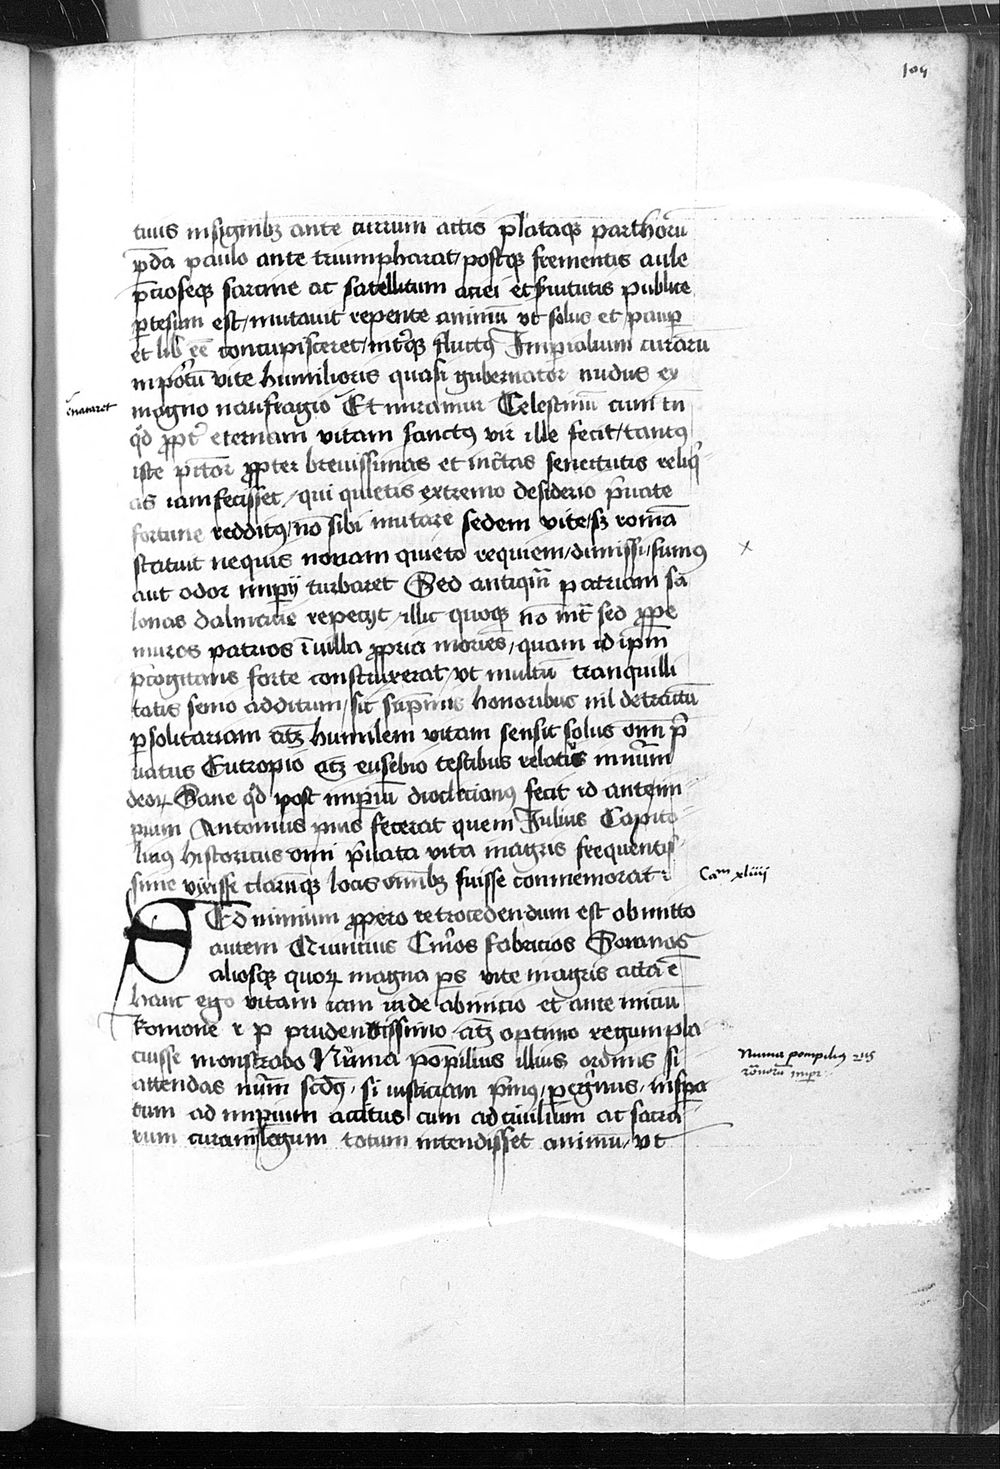 104
tiuis insignibꝫ ante currum actis p̄lataqꝫ parthorū
p̄da paulo ante triumpharat / postqꝫ frementis aule
p̄cioseqꝫ sarcine ac satellitum aciei et s̾uitutis publice
ꝑtesum est / mutauit repente animū vt solus et paup̄
et lib̾ eē concupisceret / int̾qꝫ fluctꝰ Imp̄ialium curarū
in portū vite humilioris quasi gubernator nudus ex
enataret
magno naufragio Et miramur Celestinū cum in
qd̾ ꝓpt̾ eternam vitam sanctꝰ vir ille fecit / tantꝰ
iste pctōr ꝓpter breuissimas et inc̾tas senectutis reliq̾
as iam fecisset / qui quietis extremo desiderio p̾uate
fortune redditꝰ / nō sibi mutare sedem vite / sꝫ romā
statuit nequis nouam quieto requiem / dimissi / fumꝰ
aut odor imperij turbaret Sed antiquā patriam sa
lonas dalmacie repecijt illic quoqꝫ nō int̾ sed ꝓpe
muros patrios ī villa ꝓpria moriēs / quam id ip̄m
p̄cogitans forte construxerat vt multū tranquilli
tatis senio additum / sit sup̄mis honoribus nil detractū
ꝑ solitariam atqꝫ humilem vitam sensit solus om̄i p̾
uatus Eutropio atqꝫ eusebio testibus relatꝰ in nūm
deoꝝ Sane qd̾ post imperiū dioclecianꝰ fecit id ante im
perium Antonius pius fecerat quem Iulius Capito
linꝰ historicus om̄i p̾uata vita in agris frequentis
sime vixisse clarūqꝫ locis om̄ibꝫ fuisse commemorat
Cam xliiij
SEd nimium ꝓpero retrocedendum est ob mitto
autem Quintius Curios fabricios Soranos
aliosqꝫ quoꝝ magna ps vite in agris acta ē
hanc ego vitam iam inde ab inicio et ante iniciū
Romane r p prudentissimo atqꝫ optimo regum pla
cuisse monstrabo Numa pōpilius illius ordinis si
Numa pompiliꝰ 2us
rōnorū imper
attendas nūm scd̾s / si iusticiam p̾mꝰ / peregrinus / inspera
tum ad imperium accitus cum ad ciuilium ac sacra
rum curam legum totum intendisset animū / vt